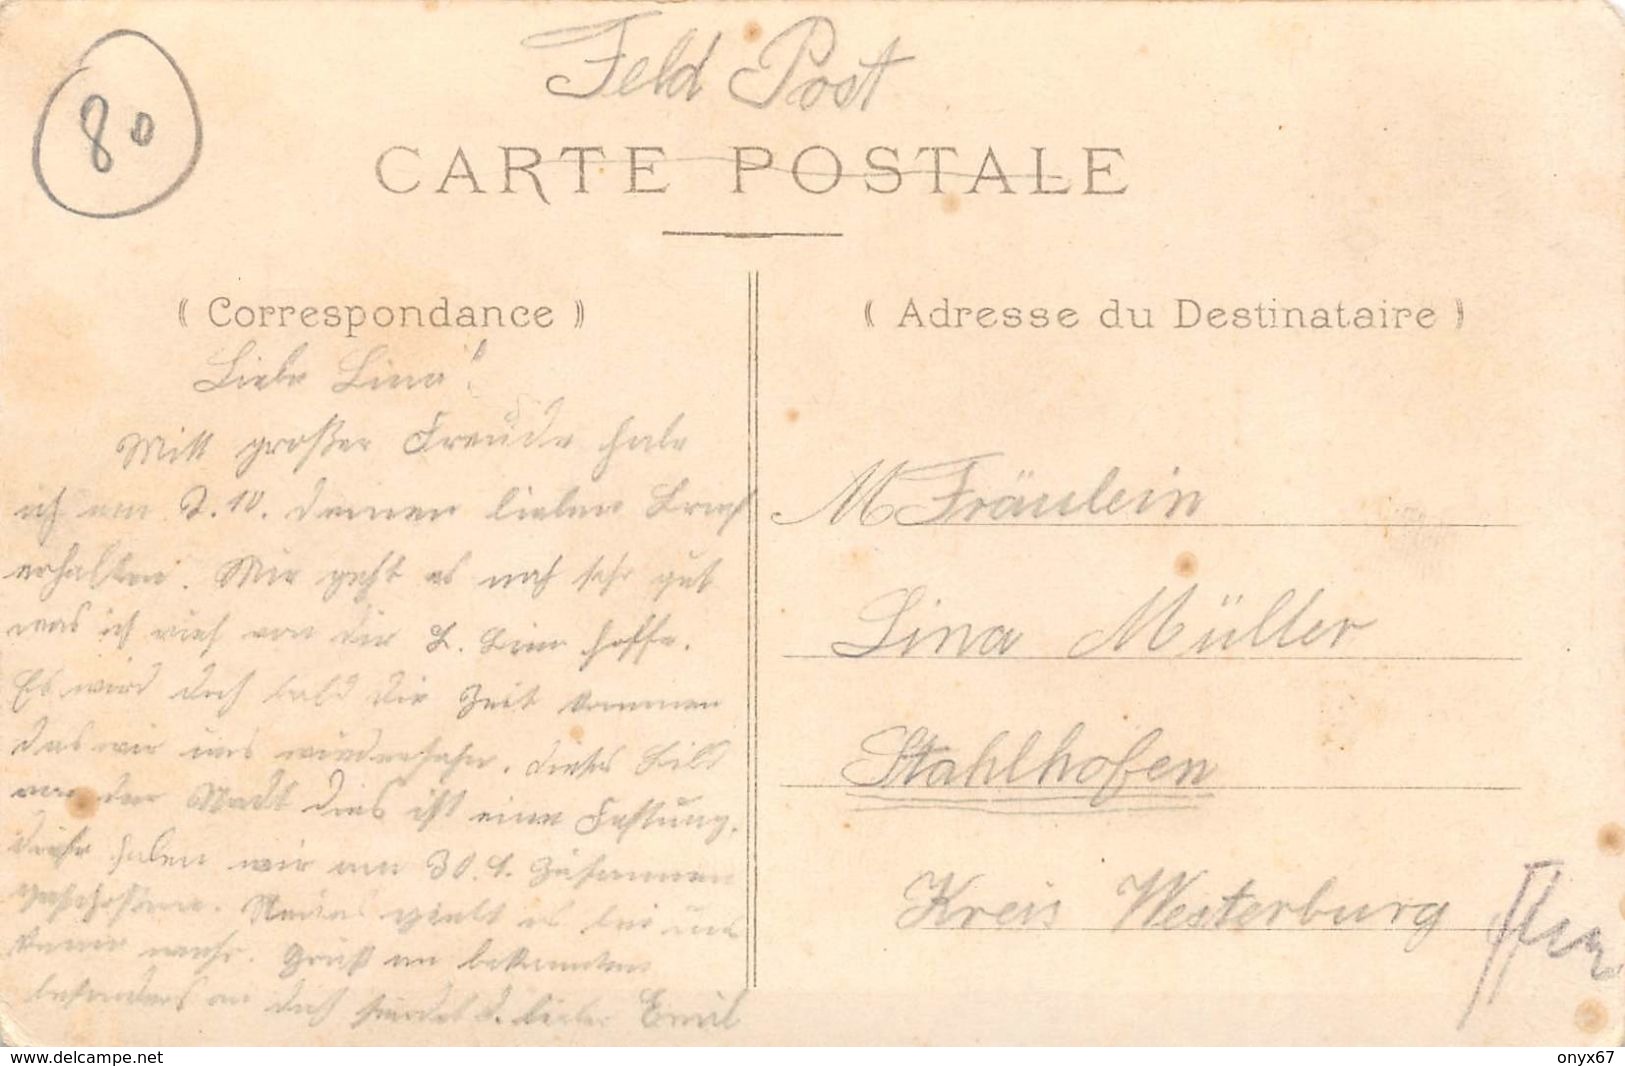 80
Feld Post
CARTE POSTALE
( Correspondance )
Liebe Lina!
Mitt großer Freude habe
ich am 2.10. deinen lieben Brief
erhalten. Mir geht es noch sehr gut
was ich auch von dir L. Lina hoffe.
Es wird doch bald die Zeit kommen
das wir uns wiedersehn. dieses Bild
von der Stadt dies ist eine Festung.
diese haben wir am 30. 9. zusammen
geschossen. Neues giebt es bei uns
keine mehr. Gruß an bekannten
besonders an dich sendet d. lieber Emil
( Adresse du Destinataire )
Fräulein
Lina Müller
Stahlhofen
Kreis Westerburg
www.delcampe.net
onyx67